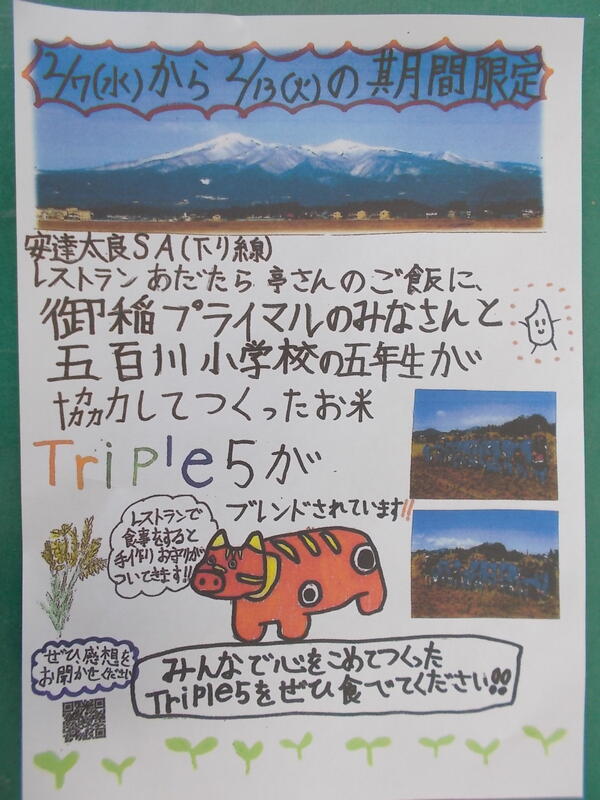 2/7(水)から2/13(火)の期間限定
安達太良SA(下り線)
レストランあだたら亭さんのご飯に、
御稲プライマルのみなさんと
五百川小学校の五年生が
協力してつくったお米
Triple5が
ブレンドされています!!
レストランで
食事をすると
手作りお守りが
ついてきます!!
ぜひ、感想を
お聞かせください
みんなで心をこめてつくった
Triple5をぜひ食べてください!!